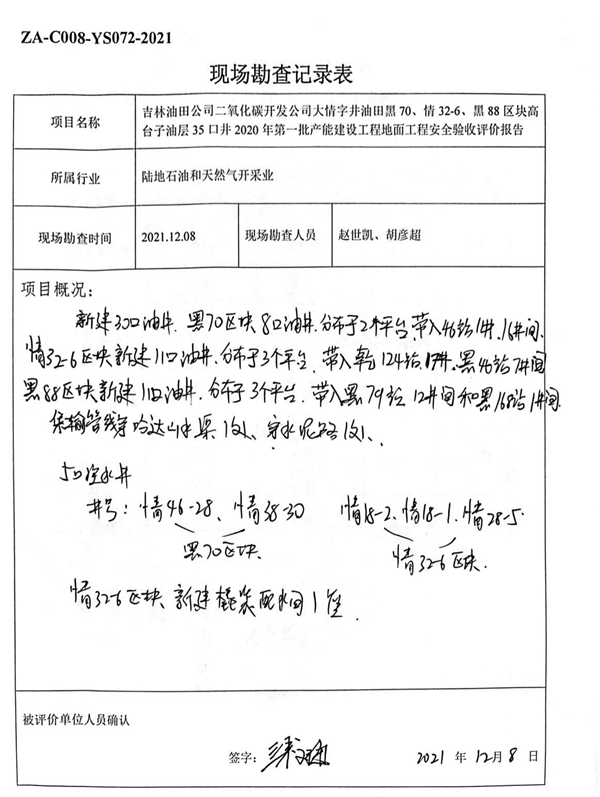 ZA-C008-YS072-2021
现场勘查记录表
项目名称
吉林油田公司二氧化碳开发公司大情字井油田黑 70、情 32-6、黑 88 区块高
台子油层 35 口井 2020 年第一批产能建设工程地面工程安全验收评价报告
所属行业
陆地石油和天然气开采业
现场勘查时间
2021.12.08
现场勘查人员
赵世凯、胡彦超
项目概况：
新建30口油井. 黑70区块8口油井.分布于2个平台.带入46站1井、16井间.
情32-6区块新建11口油井.分布于3个平台. 带入 124站 井.黑46站7井间
黑88区块新建11口油井.分布于3个平台. 带入黑79站12井间和黑168站1井间.
管线穿哈达山水渠1次、穿水泥路1次、
5口注水井
井号：情46-28、情38-30 情18-2、情18-1、情28-5
黑70区块 情32-6区块.
情32-6区块 新建橇装配水间1座.
被评价单位人员确认
签字：
2021 年 12月 8 日